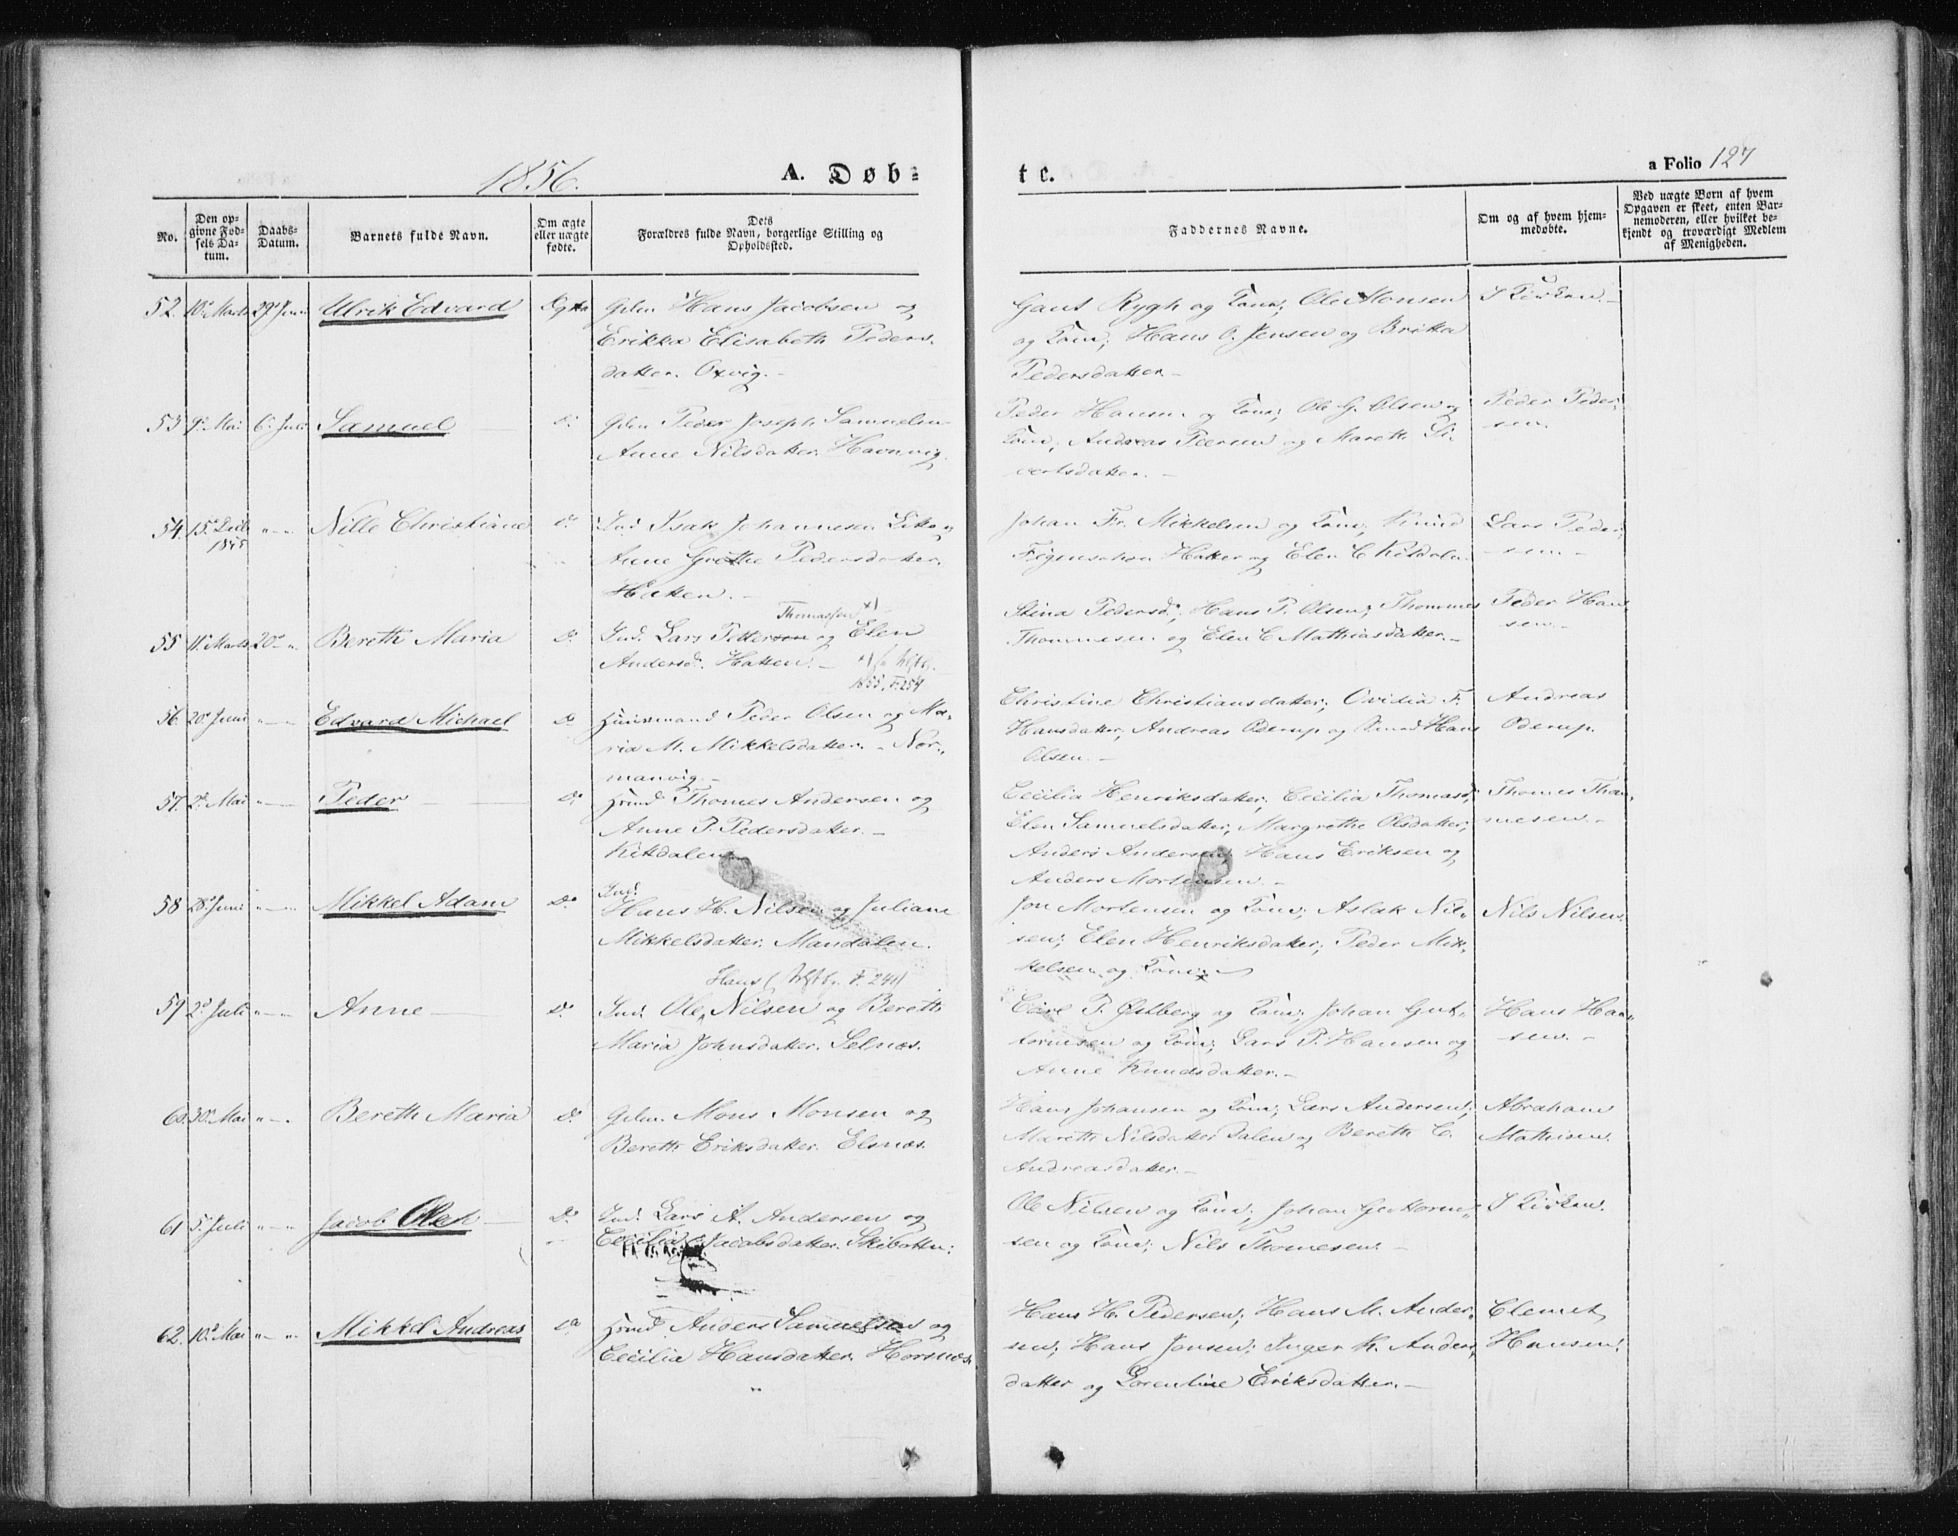 1856. A. Døb-
te.
a Folio 127
No.
Den op-
givne Fød-
sels Da-
tum.
Daabs-
Datum.
Barnets fulde Navn.
Om ægte
eller uægte
fødte.
Dets
Forældres fulde Navn, borgerlige Stilling og
Opholdssted.
Faddernes Navne.
Om og af hvem hjem-
medøbte.
Ved uægte Børn af hvem
Opgaven er skeet, enten Bar-
nemoderen, eller hvilket be-
kjendt og troværdigt Medlem
af Menigheden.
52. 10de Marts 29de Juni Ulrik Edvard Ægte Hans Jacobsen og
Erikka Elisabeth Peders-
datter. Oxvig.
Rygh og Kone; Ole Monsen
og Kone; Hans O. Jensen og Britta
Pedersdatter.
I Kirken.
53 9de Mai 6te Juli Samuel do Peder Joseph Samuelsen
Anne Nilsdatter. Havnvig.
Peder Hansen og Kone; Ole G. Olsen og
Kone; Andreas Peersen og Mareth Si-
vertsdatter.
Peder Peder-
sen.
54. 15de Dcbr
1855 " " Nille Christiane do Ind. Isak Johannesen og
Anne Grethe Pedersdatter.
Hatten.
Johan Fr. Mikkelsen og Kone; Knud
Hatten og Elen C. Kitdalen
Lars Peder-
sen.
55 11te Marts 20de " Bereth Maria do Ind. Lars Pettersen og Elen
Thomassen x)
Andersd. Hatten.
1855. F. 254
Stina Pedersd.; Hans P. Olsen; Thommes
Thommesen og Elen C. Mathiasdatter.
Peder Han-
sen.
56. 20de Juni " " Edvard Michael do Huusmand Peder Olsen og Ma-
ria M. Mikkelsdatter. Nor-
manvig.
Christine Christiansdatter; Ovidia F.
Hansdatter; Andreas Oderup og Hans
Olsen.
Andreas
Oderup.
57. 2de Mai " " Peder do Hmd Thomes Andersen og
Anne P. Pedersdatter.
Kitdalen
Cecilia Henriksdatter; Cecilia Thomasd;
Elen Samuelsdatter; Margrethe Olsdatter;
Anders Andersen; Hans Eriksen og
Anders Mortensen.
Thomes Thom-
mesen.
58 28de Juni " " Mikkel Adam do Ind.
Hans H. Nilsen og Juliane
Mikkelsdatter. Mandalen.
Jon Mortensen og Kone; Aslak Nil-
sen; Elen Henriksdatter; Peder Mik-
kelsen og Kone.
Nils Nilsen.
59 2de Juli " " Anne do Hans F. 244)
Ind. Ole Nilsen og Bereth
Maria Johnsdatter. Selnæs.
Carl P. Østberg og Kone; Johan Gut-
tormsen og Kone; Lars P. Hansen og
Anne Knudsdatter.
Hans Han-
sen.
60. 30de Mai " " Bereth Maria do Mons Monsen og
Bereth Eriksdatter. Elsnæs.
Hans Johansen og Kone; Lars Andersen;
Mareth Nilsdatter Dalen og Bereth C.
Andreasdatter.
Abraham
Mathisen.
61 5te Juli " " Jacob Olek do Ind. Lars A. Andersen og
Cecilia Jacobsdatter. Skibotten.
Ole Nilsen og Kone; Johan Guttorm-
sen og Kone; Nils Thomesen.
I Kirken.
62. 10de Mai " " Mikkel Andreas do Hmd Anders Samuelsen og
Cecilia Hansdatter. Horsnæs.
Hans H. Pedersen; Hans M. Ander-
sen; Hans Jonsen; Inger K. Anders-
datter og Lorentine Eriksdatter.
Clemet
Hansen.